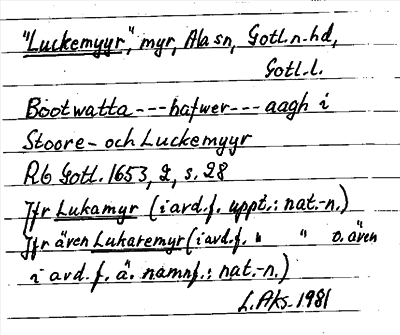 "Luckemyyr", myr, Ala sn, Gotl. n. hd,
Gotl. l.
Bootwatta --- hafwer --- aagh i
Stoore- och Luckemyyr
Rb Gotl. 1653, 2, s. 28
Jfr Lukamyr (i avd. f. uppt.: nat.-n.)
Jfr även Lukaremyr (i avd. f. " " o. även
i avd. f. ä. namnf.: nat.-n.)
L. Aks. 1981